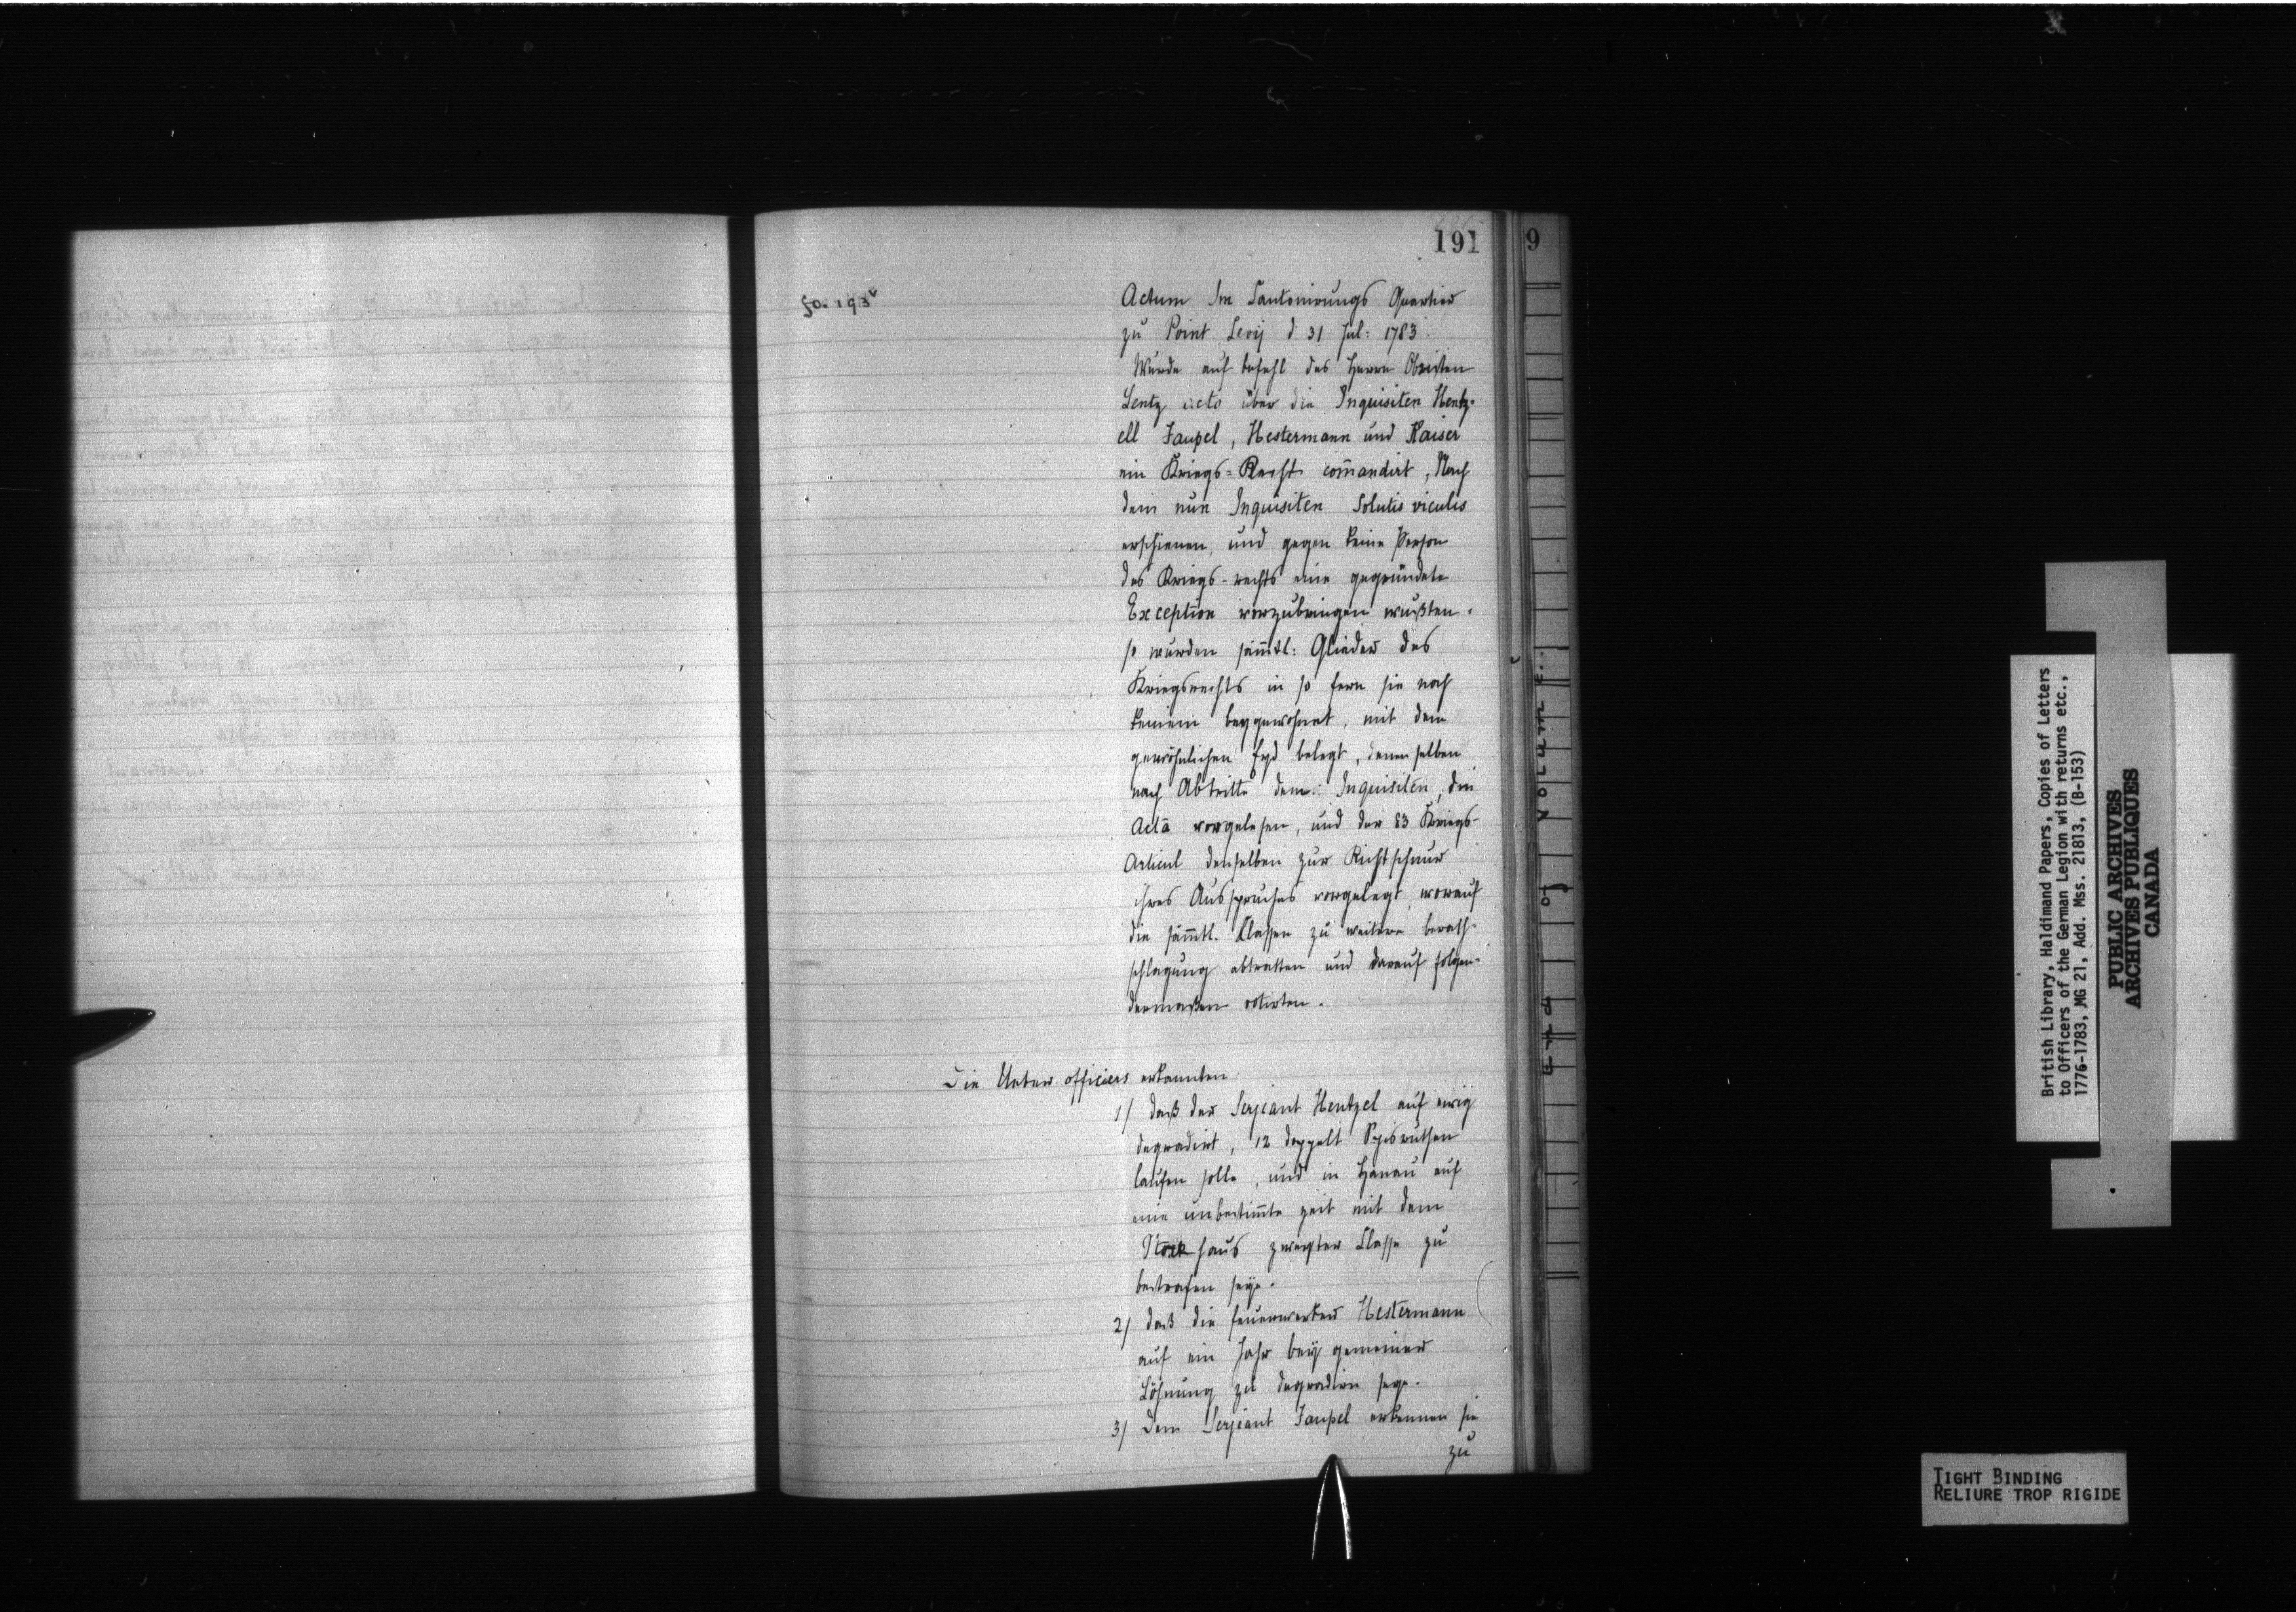 191
9
fo. 193v
Actum Im Cantonirungs Quartier
zu Point Levy d 31 Jul: 1783.
Wurde auf befehl des Herrn Obristen
Lentz acto über die Inquisiten Hentz-
ell Faupel, Hestermann und Kaiser
ein Kriegs=Recht com̄andirt, Nach
dem nun Inquisiten Solutis viculis
erschienen, und gegen keine Person
des Kriegs-rechts eine gegründete
Exception vorzubringen wußten.
so wurden säm̄tl: Glieder des
Kriegsrechts in so fern sie noch
keinem beygewohnet, mit dem
gewöhnlichen Eyd belegt, denenselben
nach Abtritt deren Inquisiten, die
Acta vorgelesen, und der 83 Kriegs-
Articul denselben zur Richtschnur
ihres Ausspruches vorgelegt, worauf
die säm̄tl. Classen zu weitere berath-
schlagung abtratten und darauf folgen-
dermaßen votirten.
Die Unter officiers erkannten
1/ daß der Serjeant Hentzel auf ewig
degradirt, 12 doppelt Spisruthen
laufen solle, und in Hanau auf
eine unbestim̄te zeit mit dem
Stockhaus zweyter Classe zu
bestrafen seye.
2/ daß die feuerwerker Hestermann
auf ein Jahr bey gemeiner
Löhnung zu degradirn seye.
3/ Dem Serjeant Faupel erkennen sie
zu
End of Volume.
British Library, Haldimand Papers, Copies of Letters
to Officers of the German Legion with returns etc.,
1776-1783, MG 21, Add. Mss. 21813, (B-153)
PUBLIC ARCHIVES
ARCHIVES PUBLIQUES
CANADA
TIGHT BINDING
RELIURE TROP RIGIDE